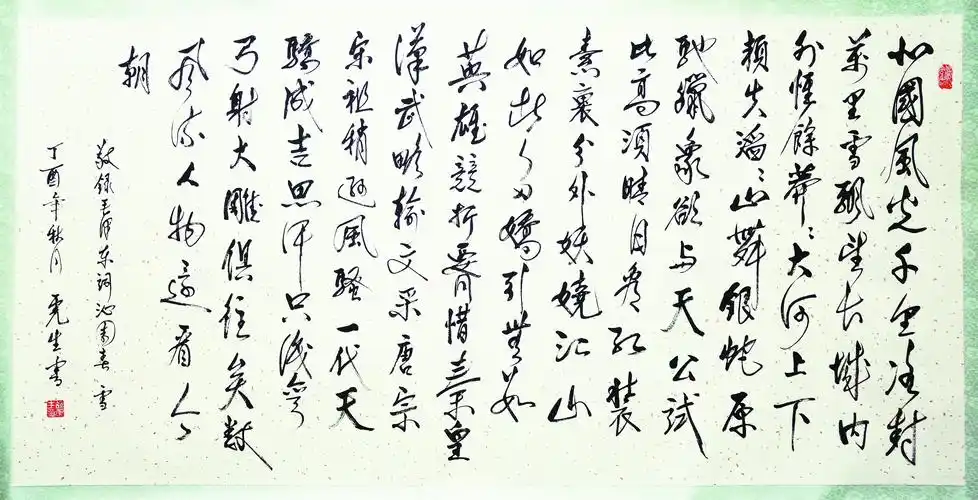 北國風光千里冰封
萬里雪飄望長城內
外惟餘莽〻大河上下
頓失滔〻山舞銀蛇原
馳蠟象欲与天公試
比高須晴日看紅裝
素裹分外妖嬈江山
如此多嬌引無數
英雄競折腰惜秦皇
漢武略輸文采唐宗
宋祖稍遜風騷一代天
驕成吉思汗只識彎
弓射大雕俱往矣數
風流人物還看今
朝
敬録毛澤东詞沁園春雪
丁酉年秋月 虎生書